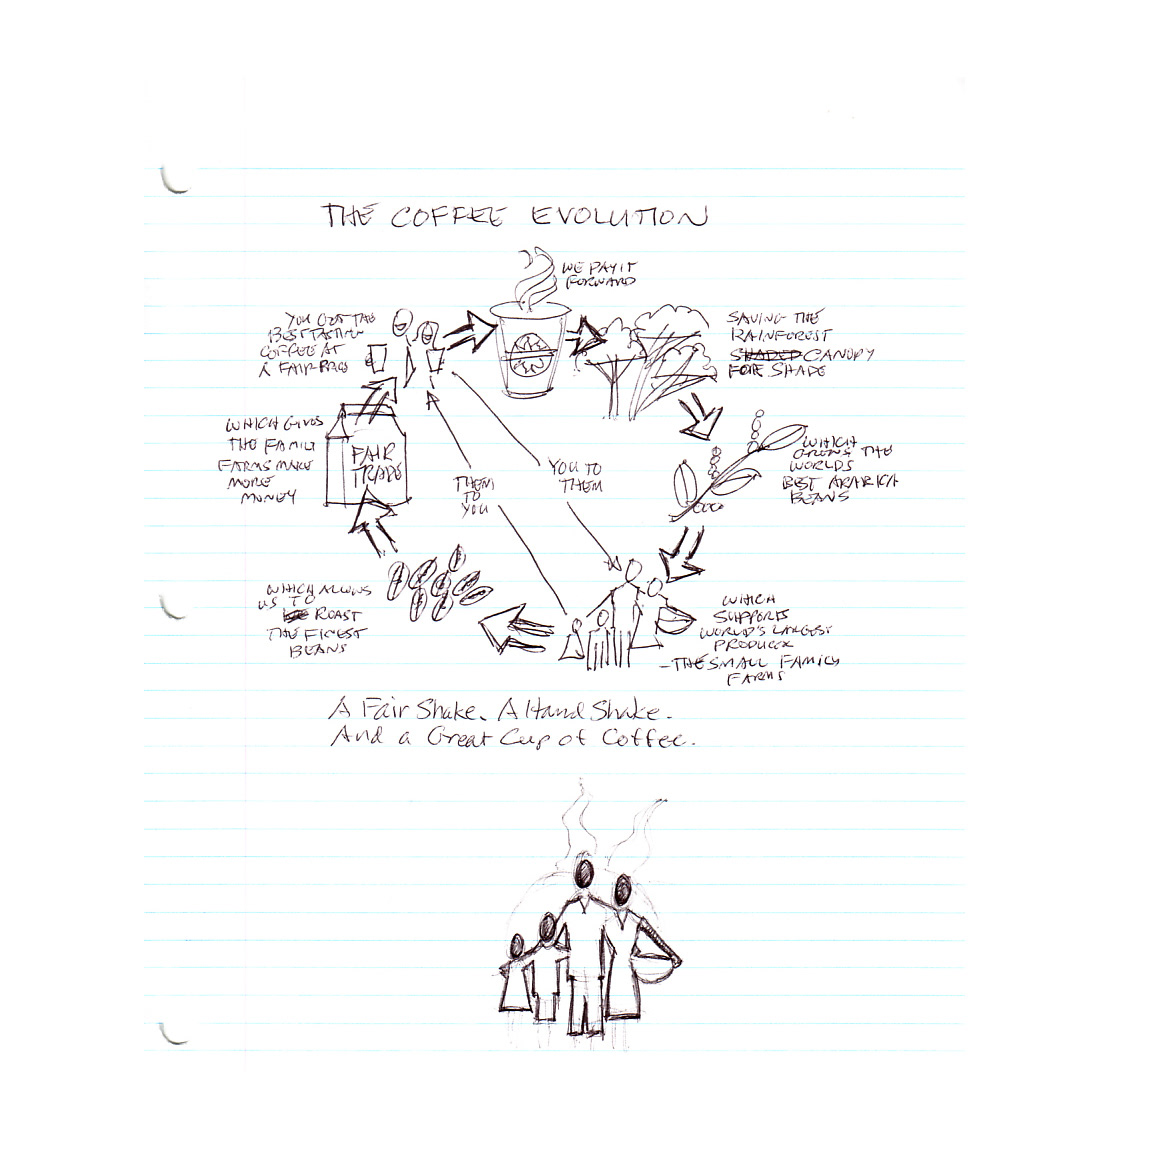 THE COFFEE EVOLUTION
WE PAY IT
FORWARD
SAVING THE
RAINFOREST
SHADED CANOPY
FOR SHADE
WHICH
GROWS THE
WORLDS
BEST ARABICA
BEANS
WHICH
SUPPORTS
WORLD'S LARGEST
PRODUCER
-THE SMALL FAMILY
FARMS
WHICH ALLOWS
US TO
ROAST
THE FINEST
BEANS
WHICH GIVES
THE FAMILY
FARMS MAKE
MORE
MONEY
FAIR
TRADE
YOU GET THE
BEST TASTING
COFFEE AT
A FAIR PRICE
THEM
TO
YOU
YOU TO
THEM
A Fair Shake. A Hand Shake.
And a Great Cup of Coffee.